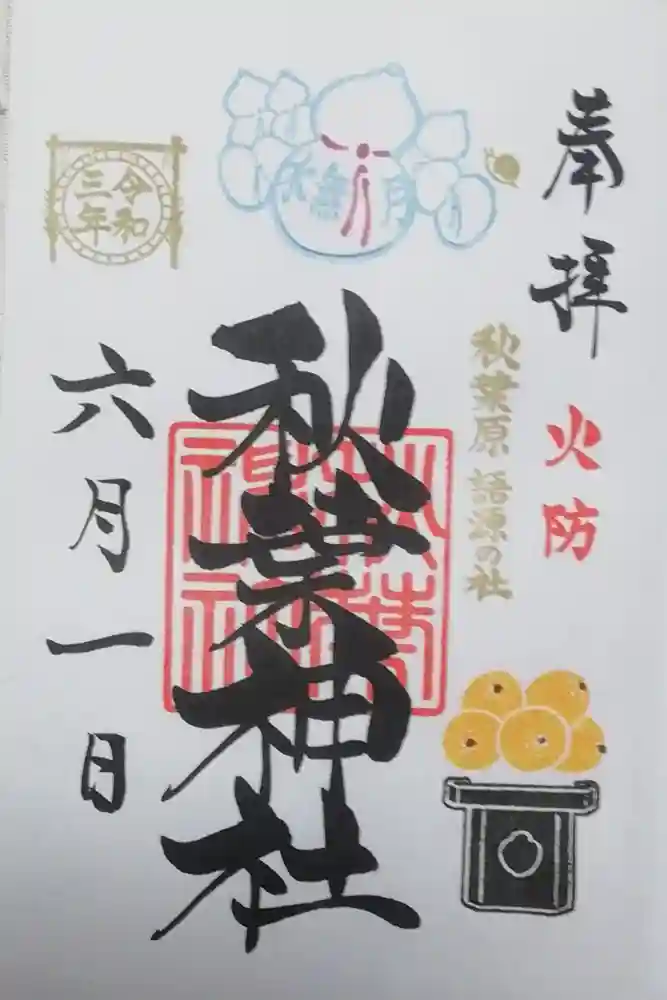 奉拝
火防
秋葉原 語源の社
水無月
秋葉神社
令和
三年
六月一日